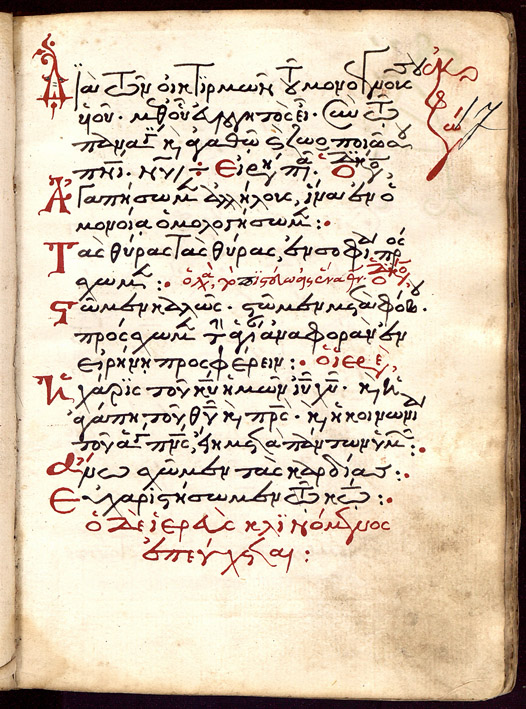 Διὰ τῶν οἰκτιρμῶν τοῦ μονογενοῦς σου ἐκφώ 17
υἱοῦ· μεθ' οὗ εὐλογητὸς εἶ· Σὺν τῷ
παναγίῳ καὶ ἀγαθῷ καὶ ζωοποιῷ σου
πνι· νῦν / ÷ Εἰρήνη πᾶσι· Ὁ διάκο,
Ἀγαπήσωμεν ἀλλήλους, ἵνα ἐν ὁ
μονοία ὁμολογήσωμεν :·
Τὰς θύρας Τὰς θύρας, ἐν σοφία πρό
σχωμεν :· ὁ χο, τὸ πιστεύω εἰς ἕνα θν· Ὁ διάκο,
Στῶμεν καλῶς· στῶμεν μετὰ φόβου·
πρόσχωμεν τὴν ἁγίαν ἀναφορὰν ἐν
εἰρήνη προσφέρειν :· ὁ ἱερεύ,
Ἡ χάρις τοῦ κυ ἡμῶν ιυ χυ· καὶ ἡ
ἀγάπη, τοῦ θυ καὶ πρς· καὶ ἡ κοινωνία
τοῦ ἁγίου πνς, εἴη μετὰ πάντων ὑμῶν :·
ἄνω σχῶμεν τὰς καρδίας :·
Εὐχαριστήσωμεν τῷ κω :·
ὁ δὲ ἱερεὺς κλινόμενος
ἐπεύχεται :